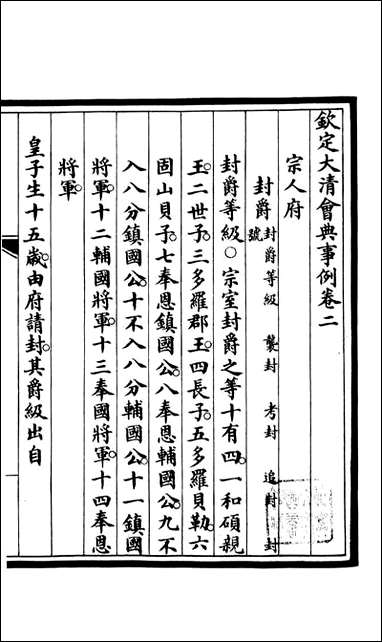 欽定大清會典事例卷二
宗人府
封爵 封爵等級 襲封 考封 追封 封
號
封爵等級○宗室封爵之等十有四。一和碩親
王。二世子。三多羅郡王。四長子。五多羅貝勒。六
固山貝子。七奉恩鎮國公。八奉恩輔國公。九不
入八分鎮國公。十不入八分輔國公。十一鎮國
將軍。十二輔國將軍。十三奉國將軍。十四奉恩
將軍。
皇子生十五歲。由府請封。其爵級出自